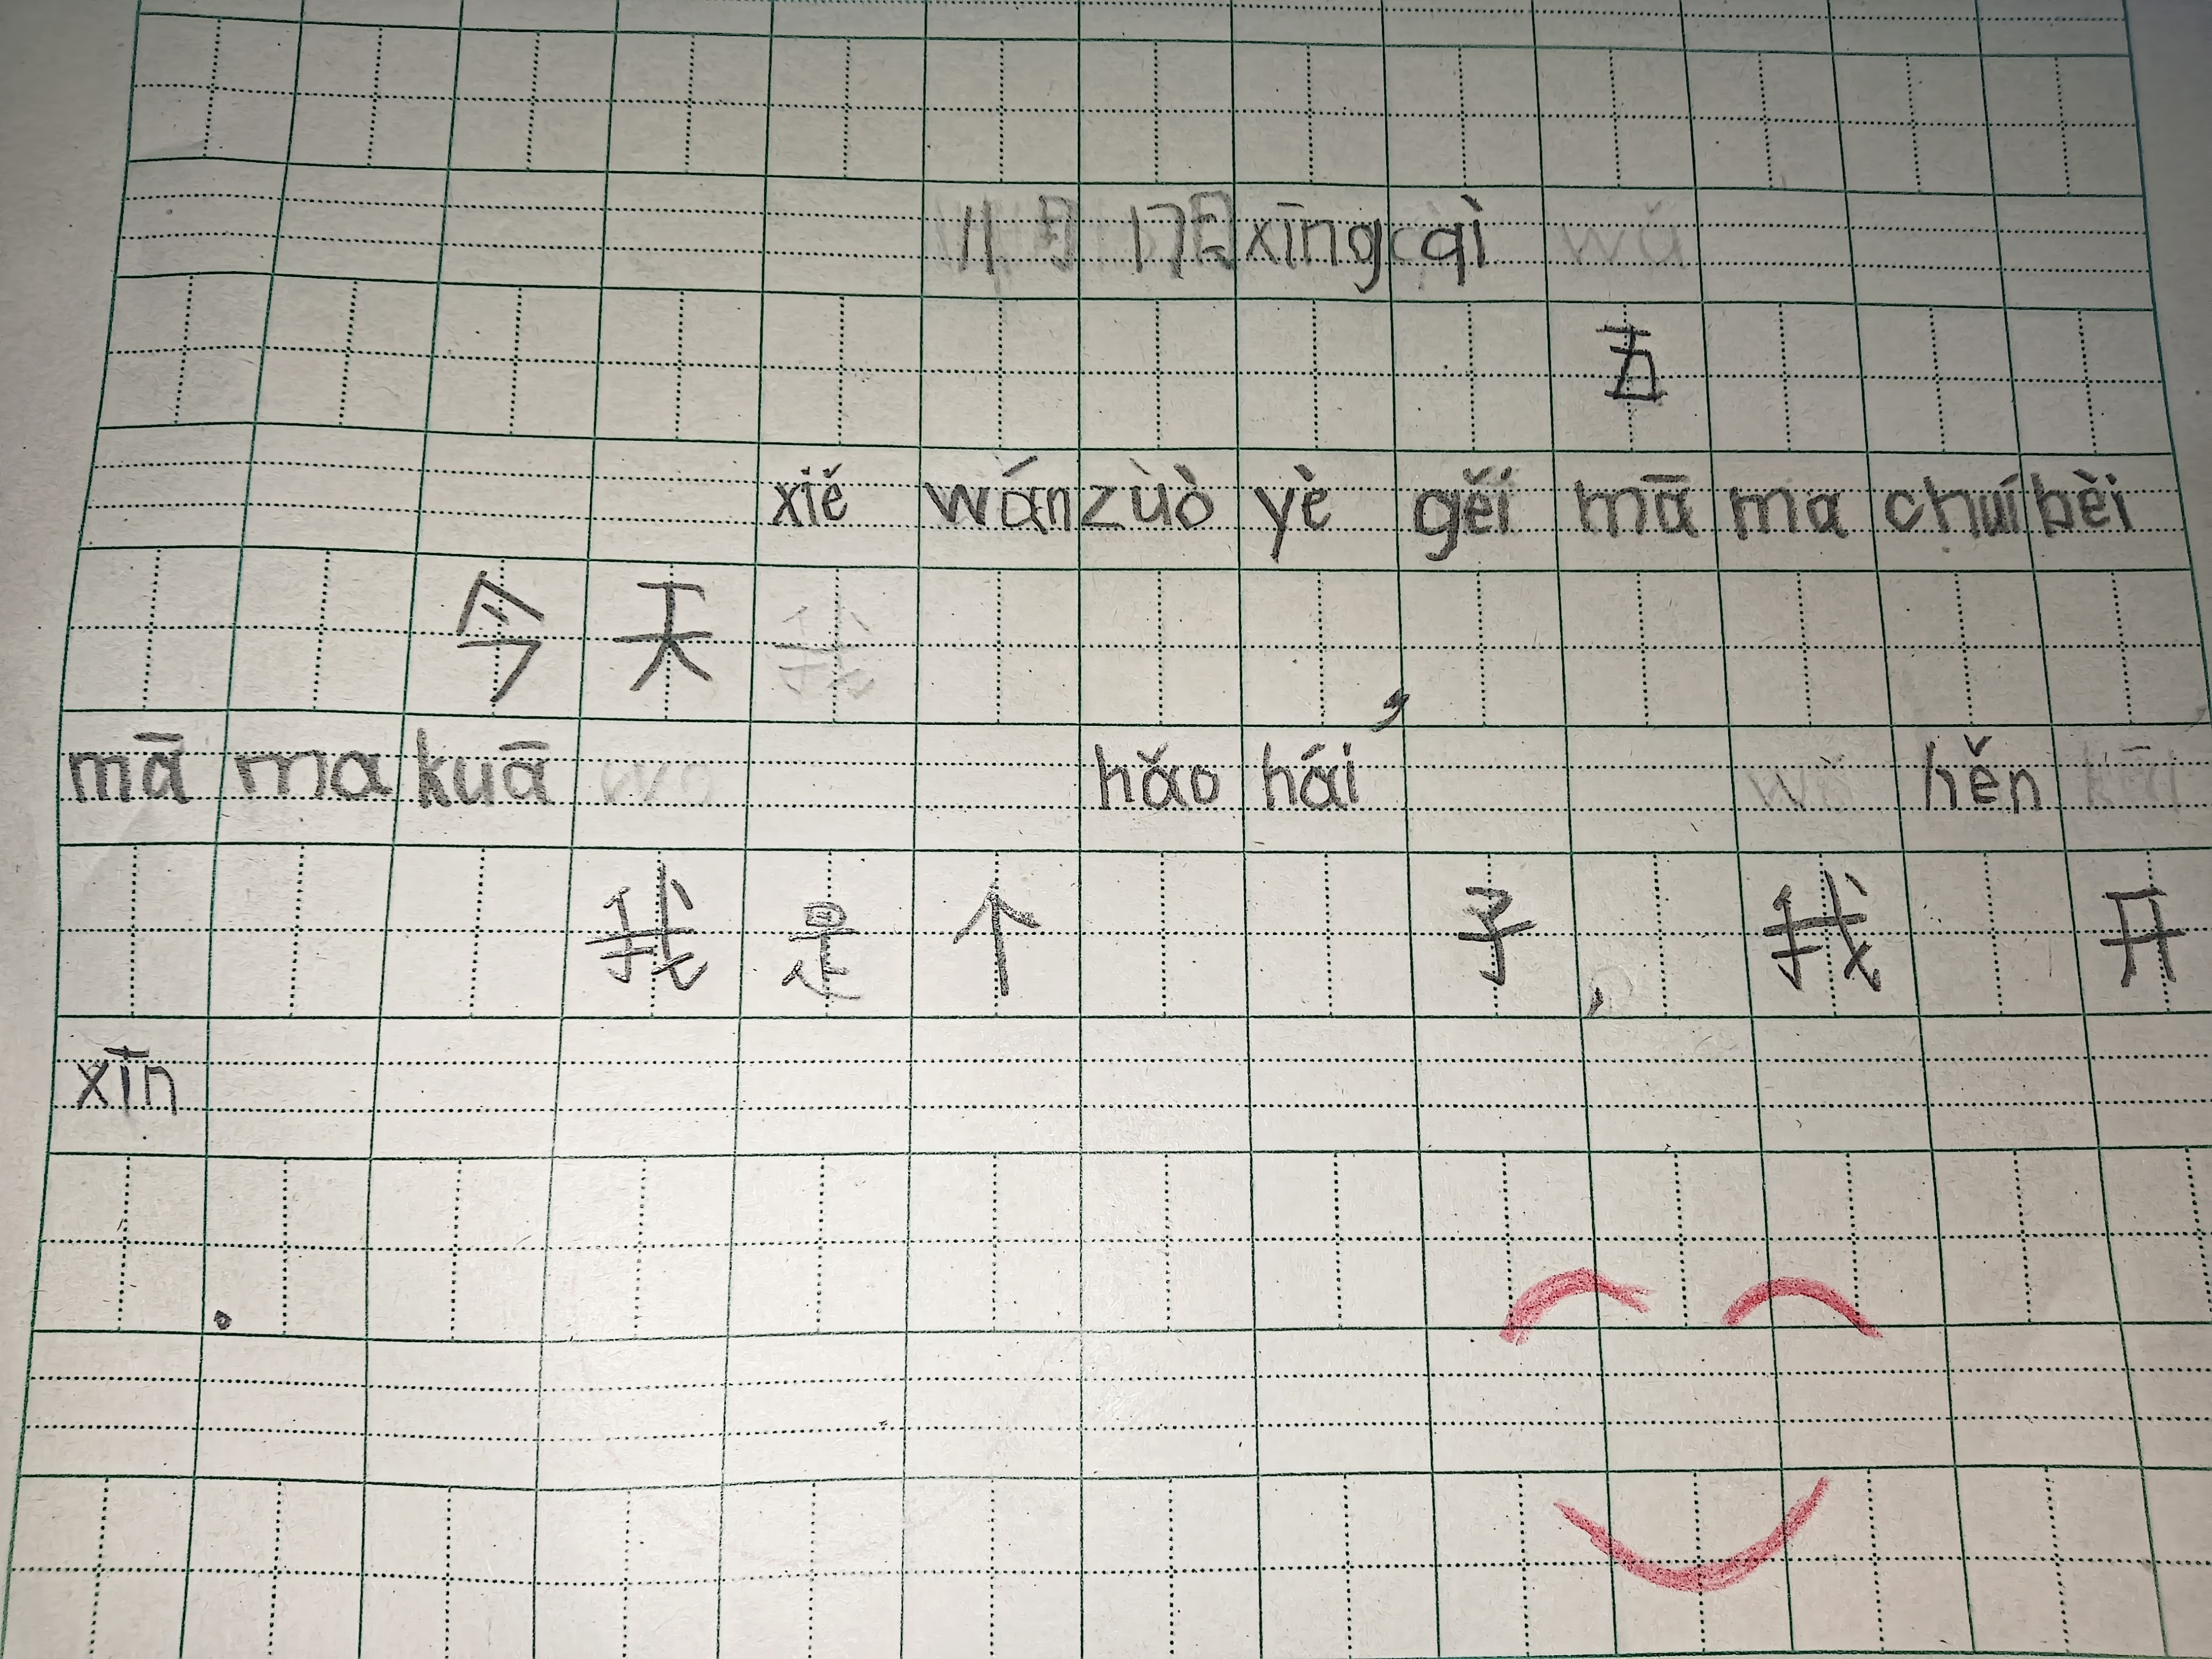 11月17日 xīng qì 五
今天 xiě wán zuò yè, gěi mā ma chuí bèi,
mā ma kuā 我是个 hǎo hái 子, 我 hěn 开
xīn。